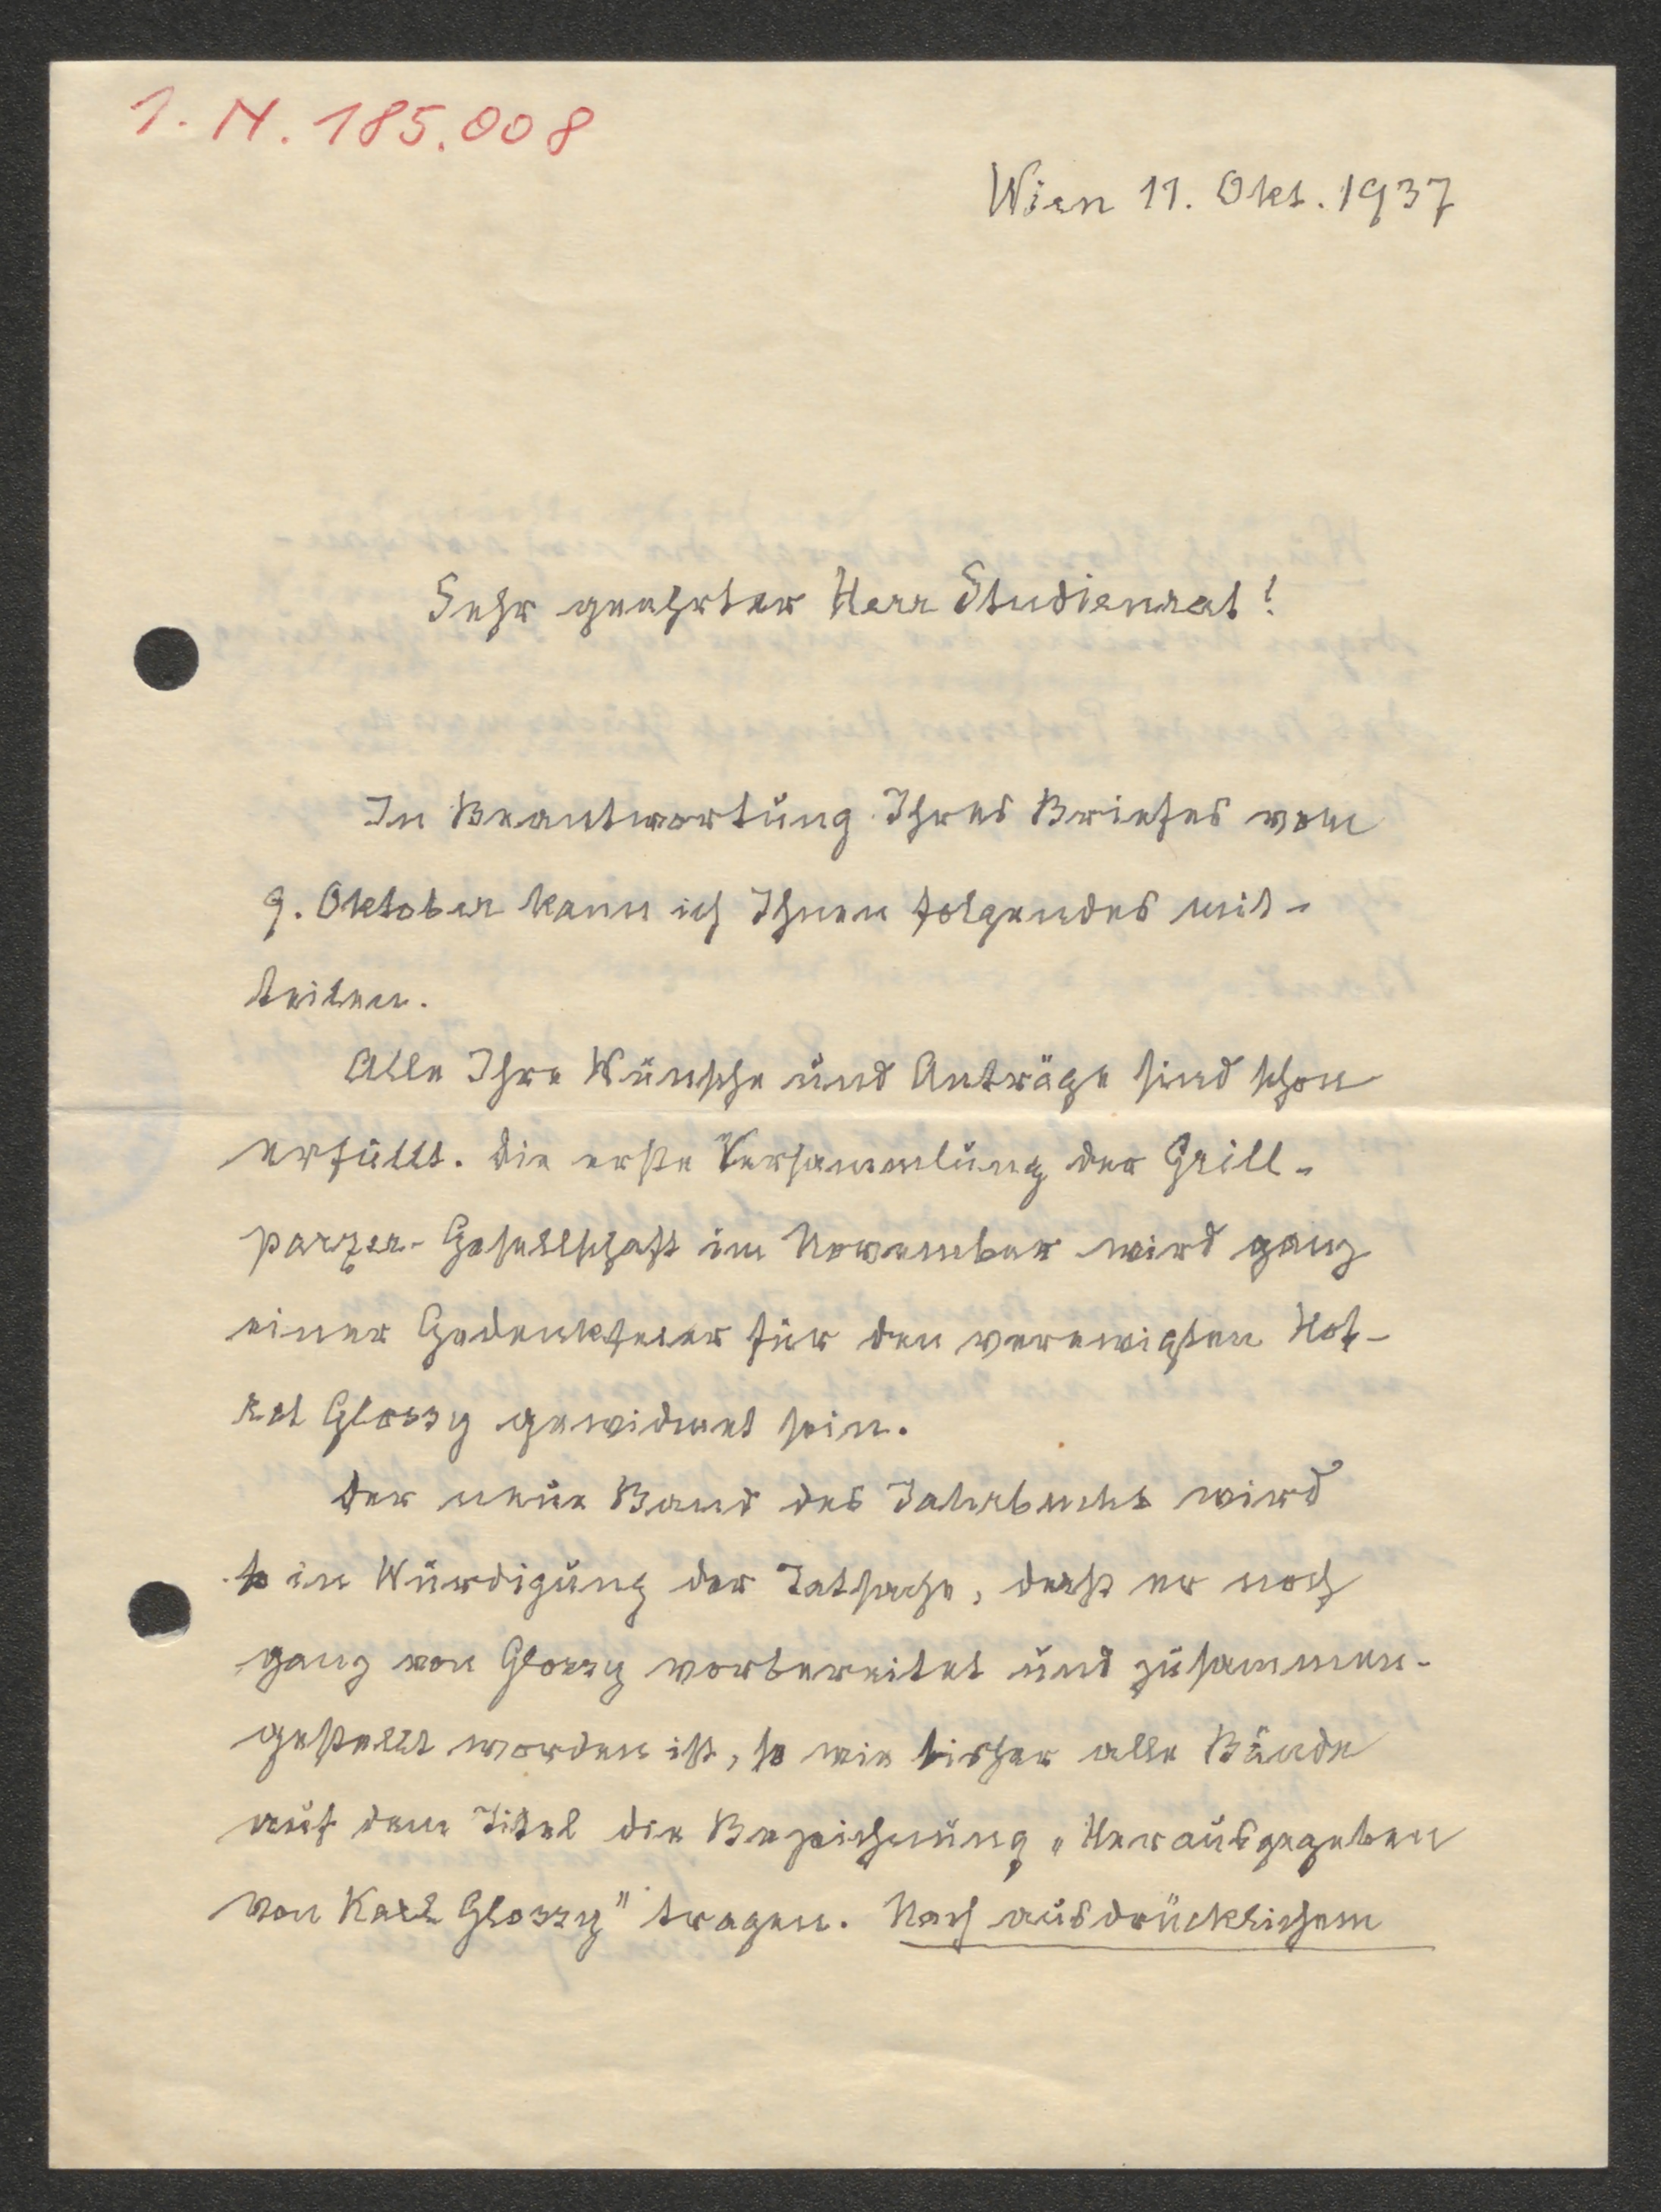 I. N. 185.008
Wien 11. Okt. 1937
Sehr geehrter Herr Studienrat!
In Beantwortung Ihres Briefes vom
9. Oktober kann ich Ihnen folgendes mit-
teilen.
Alle Ihre Wünsche und Anträge sind schon
erfüllt. Die erste Versammlung der Grill-
parzer-Gesellschaft im November wird ganz
einer Gedenkfeier für den verewigten Hof-
rat Glossy gewidmet sein.
Der neue Band des Jahrbuchs wird
in Würdigung der Tatsache, dass er noch
ganz von Glossy vorbereitet und zusammen-
gestellt worden ist, so wie bisher alle Bände
auf dem Titel die Bezeichnung „Herausgegeben
von Karl Glossy" tragen. Nach ausdrücklichem